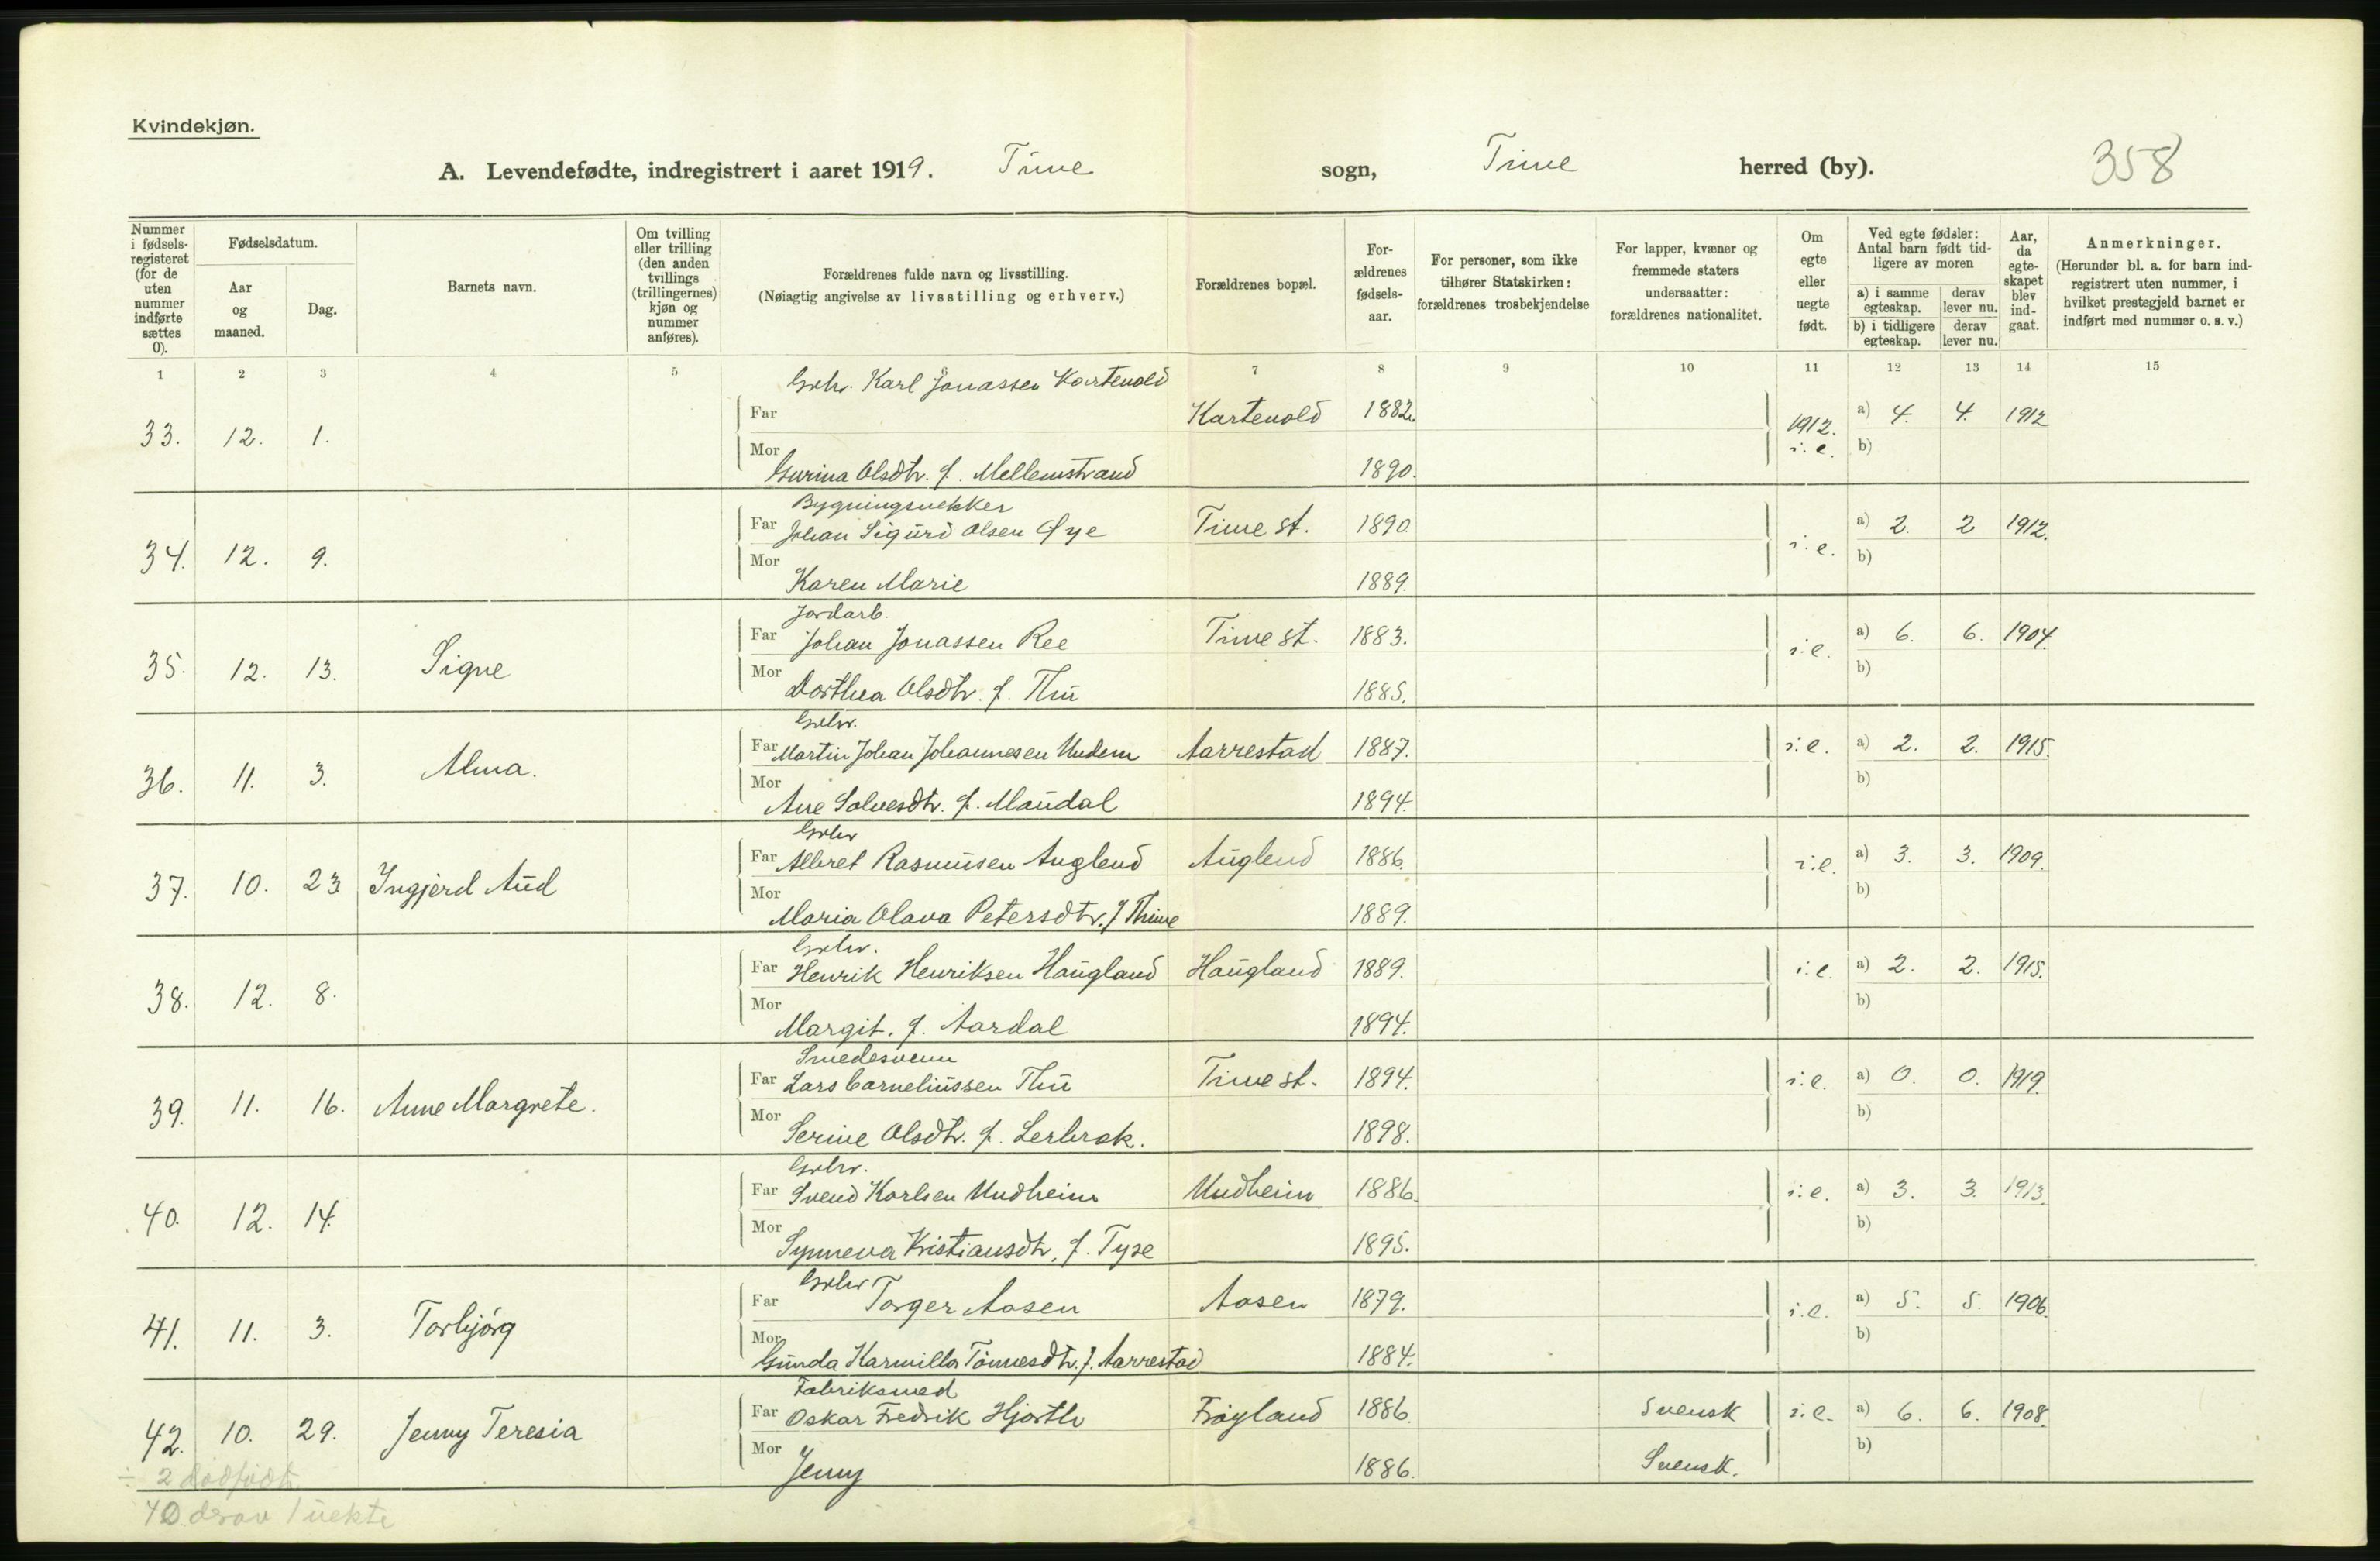 Kvindekjøn.
A. Levendefødte, indregistrert i aaret 1919. Time sogn, Time herred (by). 358
Nummer i fødselsregisteret (for de uten nummer indførte sættes 0).
Fødselsdatum.
Aar og maaned.
Dag.
Barnets navn.
Om tvilling eller trilling (den anden tvillings (trillingernes) kjøn og nummer anføres).
Forældrenes fulde navn og livsstilling.
(Nøiagtig angivelse av livsstilling og erhverv.)
Forældrenes bopæl.
Forældrenes fødselsaar.
For personer, som ikke tilhører Statskirken: forældrenes trosbekjendelse
For lapper, kvæner og fremmede staters undersaatter: forældrenes nationalitet.
Om egte eller uegte født.
Ved egte fødsler: Antal barn født tidligere av moren
a) i samme egteskap. derav lever nu.
b) i tidligere egteskap. derav lever nu.
Aar, da egteskapet blev indgaat.
Anmerkninger.
(Herunder bl. a. for barn indregistrert uten nummer, i hvilket prestegjeld barnet er indført med nummer o. s. v.)
1 2 3 4 5 7 8 9 10 11 12 13 14 15
Grbr. Karl Jonassen Kartevold
33. 12. 1. Far Kartevold 1882. 1912. i.e. a) 4. 4. 1912
Mor Gurina Olsdtr. f. Mellemstrand 1890. b)
Bygningsnekker
34. 12. 9. Far Johan Sigurd Olsen Øye Time st. 1890. i.e. a) 2. 2 1912.
Mor Karen Marie 1889. b)
Jordarb.
35. 12. 13. Signe Far Johan Jonassen Ree Time st. 1883. i.e. a) 6. 6. 1904.
Mor Dorthea Olsdtr. f. Thu 1885. b)
Grbr.
36. 11. 3. Alma. Far Martin Johan Johannesen Undem Aarrestad 1887. i.e. a) 2. 2. 1915.
Mor Ane Solvesdtr. f. Maudal 1894. b)
Grbr
37. 10. 23 Ingjerd Aud Far Albret Rasmusen Auglend Auglend 1886. i.e. a) 3. 3. 1909.
Mor Maria Olava Petersdtr. f Thime 1889. b)
Grbr.
38. 12. 8. Far Henrik Henriksen Haugland Haugland 1889. i.e. a) 2. 2. 1915.
Mor Margit. f. Aardal 1894. b)
Smedesvenn
39. 11. 16. Anne Margrete. Far Lars Corneliussen Thu Time st. 1894. i.e. a) 0. 0. 1919.
Mor Serine Olsdtr. f. Lerbrek. 1898. b)
Grbr.
40. 12. 14. Far Svend Karlsen Undheim Undheim 1886. i.e. a) 3. 3. 1913.
Mor Synneva Kristiansdtr. f. Tyse 1895. b)
Grbr
41. 11. 3. Torbjórg Far Torger Aasen Aasen 1879. i.e. a) 5. 5. 1906.
Mor Gunda Karmilla Tönnesdtr. f. Aarrestad 1884. b)
Fabriksmed
42. 10. 29. Jenny Teresia Far Oskar Fredrik Hjorth Fröyland 1886. Svensk i.e. a) 6. 6. 1908.
Mor Jenny 1886. Svensk. b)
÷ 2 dødfødt
40 derav 1 uekte